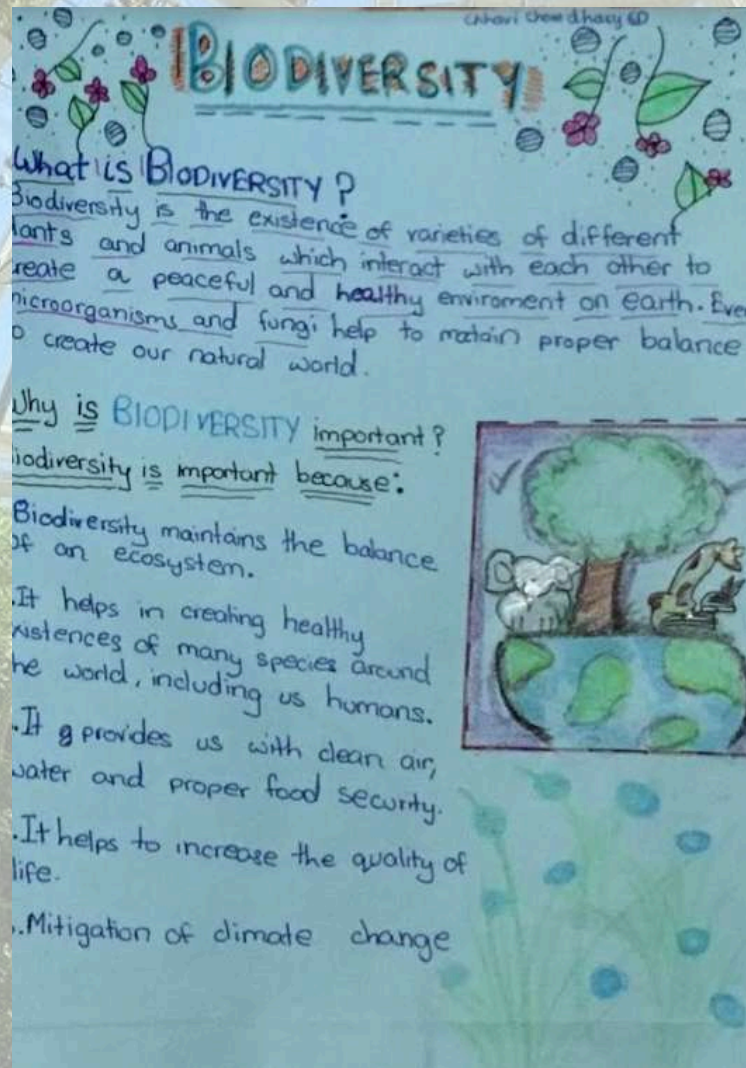 Chhavi Chowdhary 6D
BIODIVERSITY
What is BIODIVERSITY?
Biodiversity is the existence of varieties of different
lants and animals which interact with each other to
reate a peaceful and healthy enviroment on earth. Even
nicroorganisms and fungi help to matain proper balance
o create our natural world.
Why is BIODIVERSITY important?
iodiversity is important because:
Biodiversity maintains the balance
of an ecosystem.
.It helps in creating healthy
xistences of many species around
he world, including us humans.
.It g provides us with clean air,
water and proper food security.
.It helps to increase the quality of
life.
..Mitigation of climate change